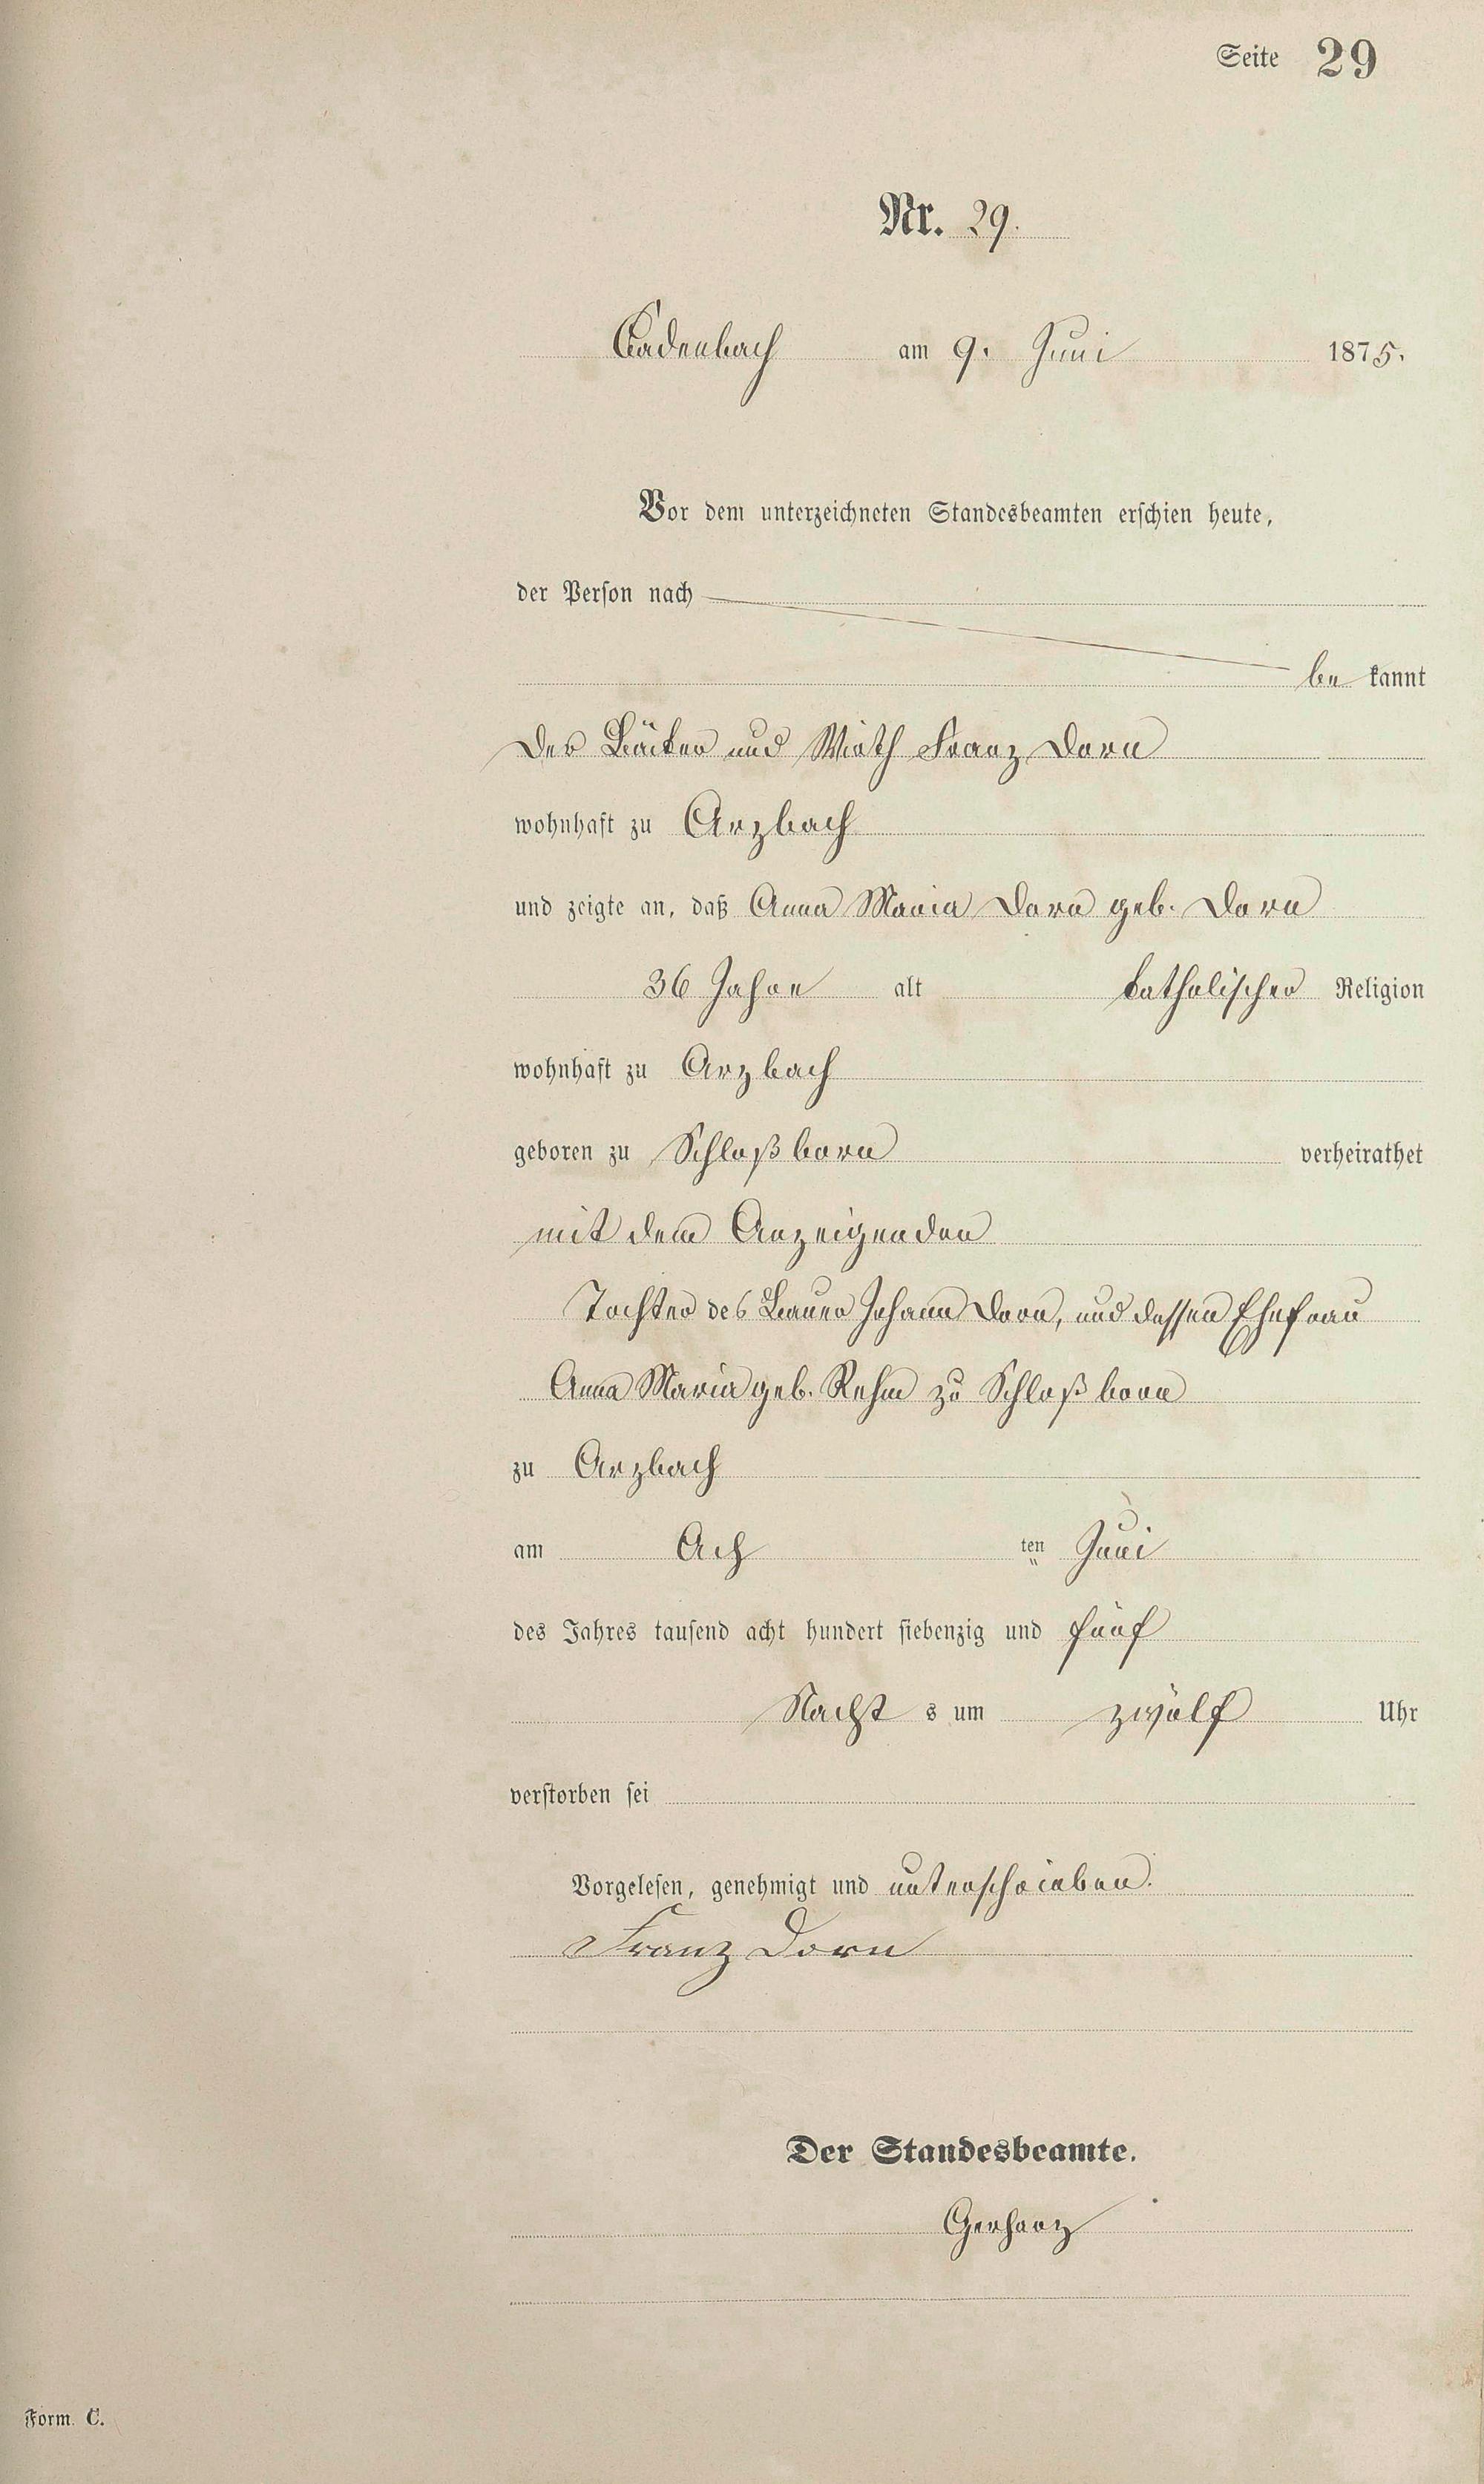 Seite 29
Nr. 29.
Cadenbach am 9. Juni 1875.
Vor dem unterzeichneten Standesbeamten erschien heute,
der Person nach
be kannt
der Bäcker und Wirth Franz Dorn
wohnhaft zu Arzbach
und zeigte an, daß Anna Maria Dorn geb. Dorn
36 Jahre alt katholischer Religion
wohnhaft zu Arzbach
geboren zu Schloßborn verheirathet
mit dem Anzeigenden
Tochter des Bauer Johann Dorn, und dessen Ehefrau
Anna Maria geb. Rehm zu Schloßborn
zu Arzbach
am Ach ten Juni
des Jahres tausend acht hundert siebenzig und fünf
Nacht s um zwölf Uhr
verstorben sei
Vorgelesen, genehmigt und unterschrieben.
Franz Dorn
Der Standesbeamte.
Gerharz
Form. C.